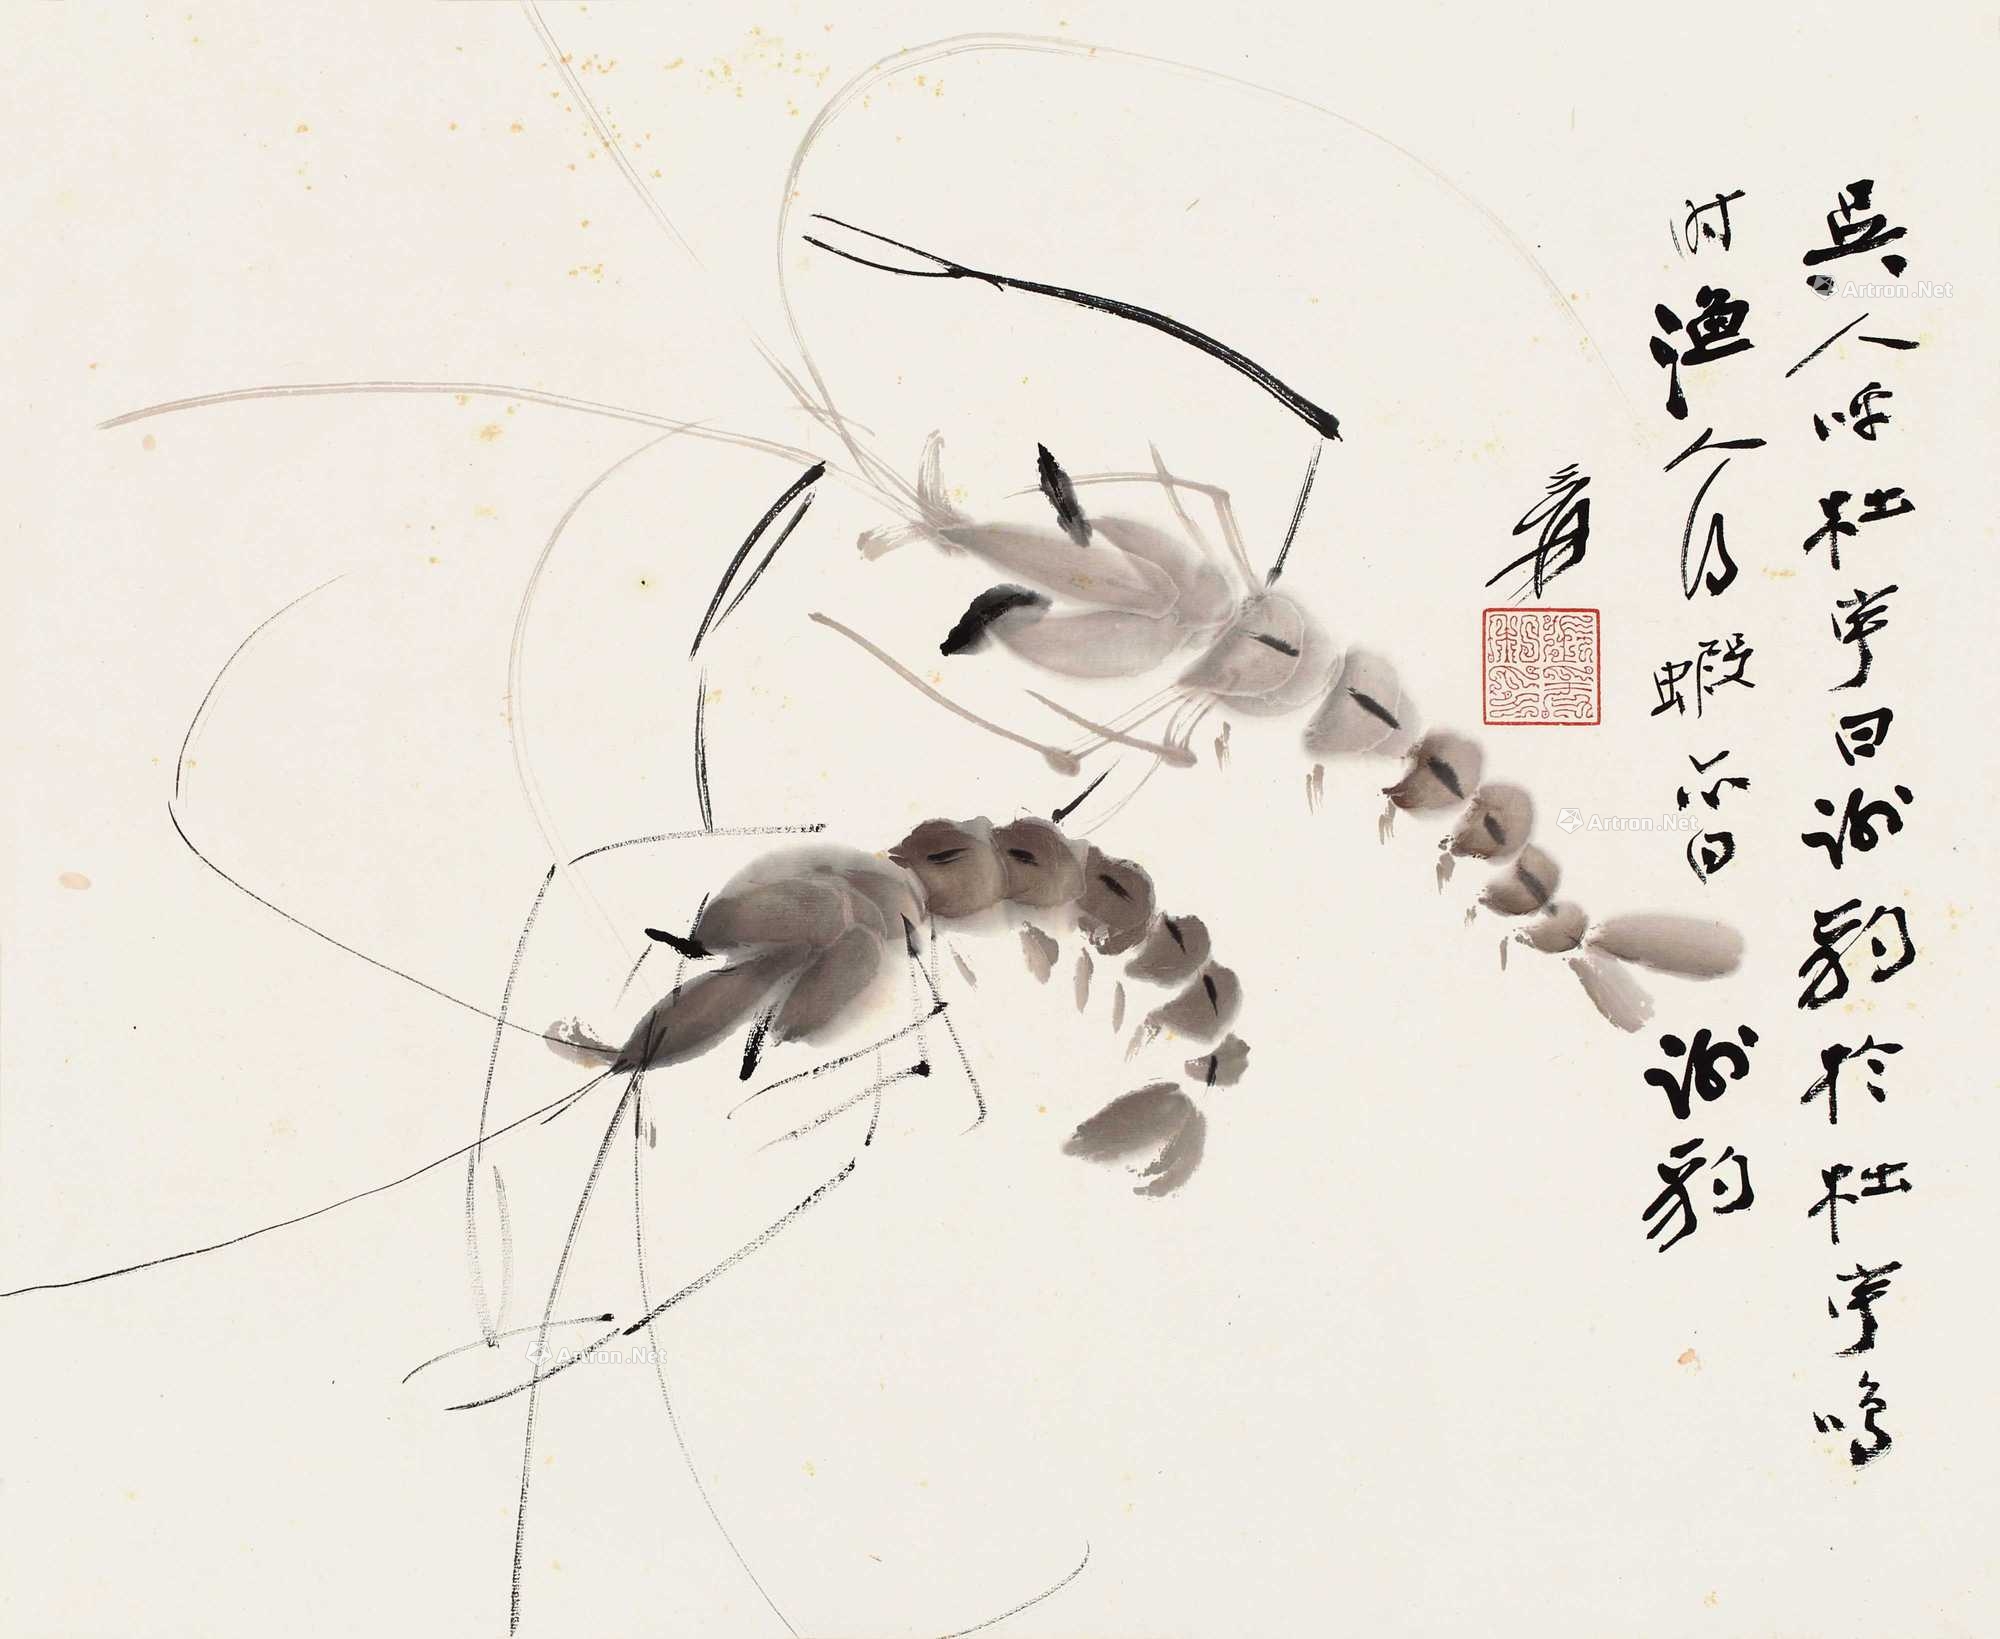 吳人呼杜宇曰謝豹於杜宇鳴
时漁人得蝦亦曰謝豹
爰
Artron.Net
Artron.Net
Artron.Net